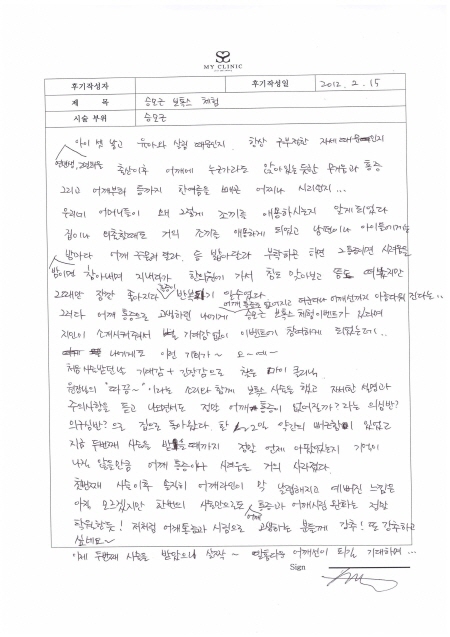 MY CLINIC
후기작성자 후기작성일 2012. 2. 15
제 목 승모근 보톡스 체험
시술 부위 승모근
아이 셋 낳고 육아와 살림 때문인지 항상 구부정한 자세 때문인지
출산이후 어깨에 누군가라도 앉아있는 듯한 무게감과 통증
그리고 어깨부터 등까지 한여름을 빼곤 어찌나 시리던지...
우리네 어머니들이 왜 그렇게 조끼를 애용하시는지 알게되었다
집이나 외출할때도 거의 조끼를 애용하게 되었고 남편이나 아이들에게는
밤마다 어깨 주물러 달라. 등 밟아달라 부탁하곤 하면 그통증이면 시려움을
참아내며 지내다가 한의원에 가서 침도 맞아보고 했지만
그때만 잠깐 좋아지다 반복되기 일수였다
그러다 어깨 통증으로 고생하던 나에게 승모근 보톡스 체험이벤트가 있다며
지인이 소개시켜주셔서 별 기대감 없이 이벤트에 참여하게 되었는데..
나에게도 이런 기회가~ 오~예~
처음 시술받던 날 기대감 + 긴장감으로 찾은 마이 클리닉
원장님의 "따끔~" 이라는 소리와 함께 보톡스 시술을 했고 자세한 설명과
주의사항을 듣고 나오면서도 정말 어깨 통증이 없어질까? 라는 의심반?
의구심반? 으로 집으로 돌아왔다. 한 1,2주 약간의 뻐근함이 있었고
지금 두번째 시술을 받을때까지 정말 언제 아팠었는지 기억이
나지 않을만큼 어깨 통증이나 시려움은 거의 사라졌다.
첫번째 시술이후 솔직히 어깨라인이 막 날렵해지고 예뻐진 느낌은
아직 모르겠지만 한번의 시술만으로도 통증과 어깨시림 완화는 정말
탁월한듯! 저처럼 어깨통증과 시림으로 고생하는 분들께 강추! 또 강추하고
싶네요~
이제 두번째 시술을 받았으니 살짝~ 아름다운 어깨선이 되길 기대하며...
Sign